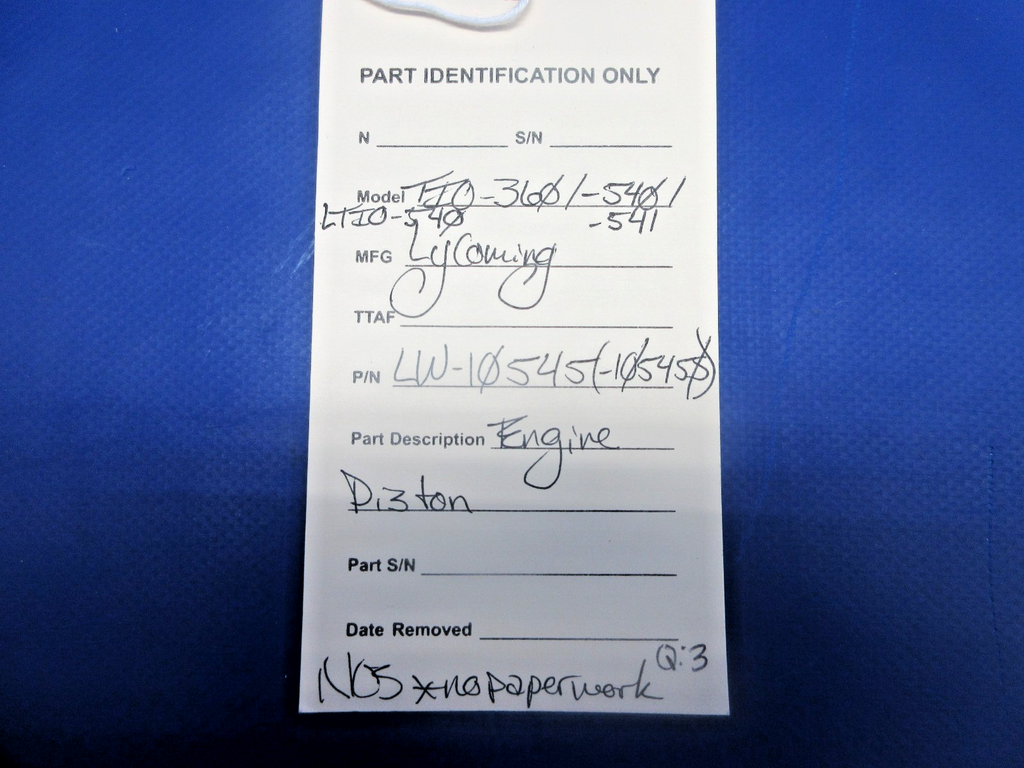 PART IDENTIFICATION ONLY
N S/N
Model TIO-360/-540/
LTIO-540 -541
MFG Lycoming
TTAF
P/N LW-10545(-10545S)
Part Description Engine
Piston
Part S/N
Date Removed
Q:3
NOS *no paperwork